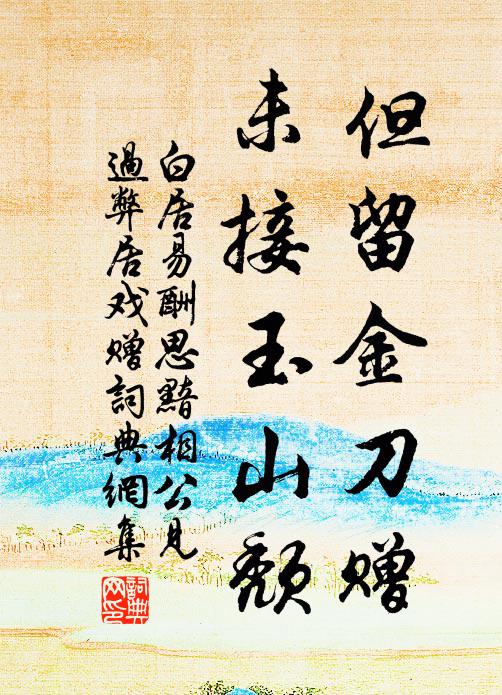 但留金刀赠
未接玉山颓
白居易酬思黯相公见
過弊居戏赠詞典網集
詞典
网印